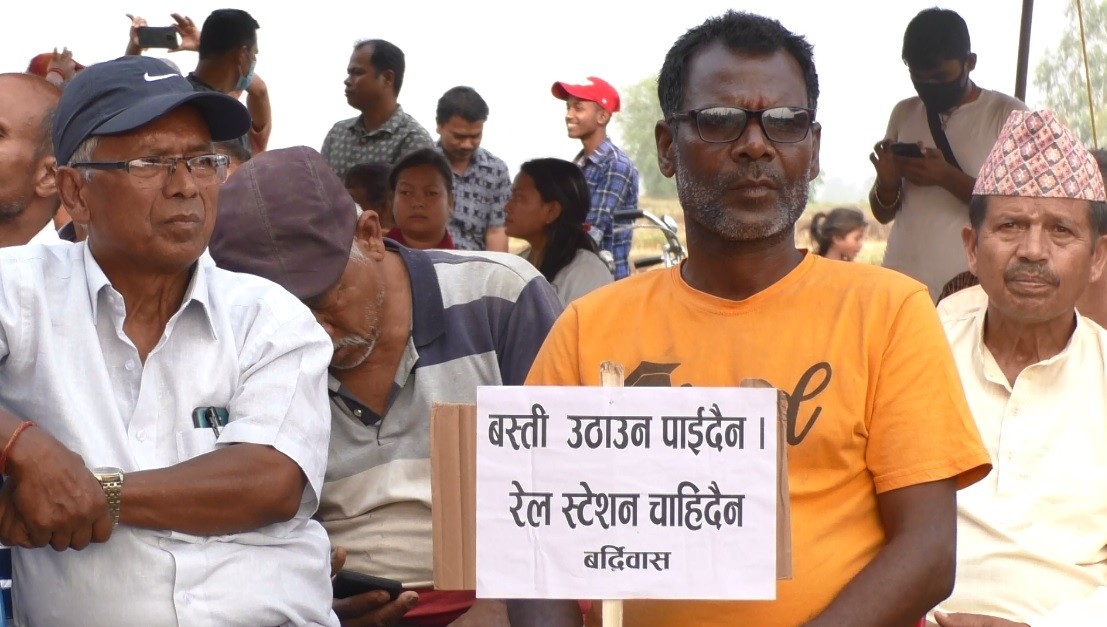 बस्ती उठाउन पाईदैन ।
रेल स्टेशन चाहिदैन
बर्दिवास